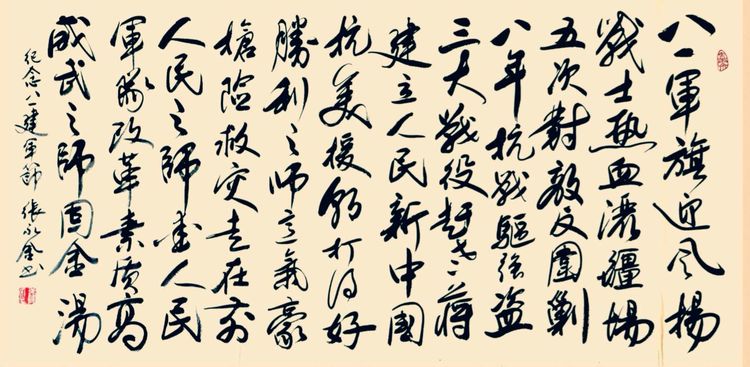 八一軍旗迎风揚
戰士热血灑疆場
五次對敵反圍剿
八年抗戰驅强盗
三大戰役赶老蒋
建立人民新中國
抗美援朝打得好
勝利之师意氣豪
搶险救灾走在前
人民之師爱人民
軍隊改革素质高
威武之師固金湯
纪念八一建军節 張永金书